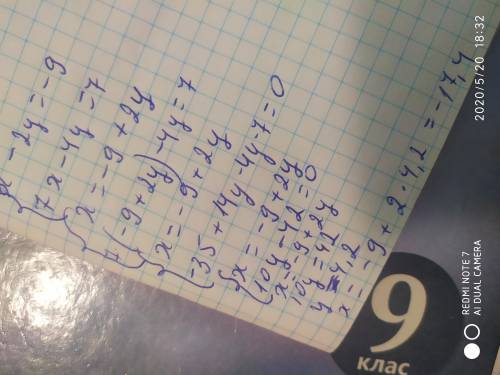 x - 2y = -9
7x - 4y = 7
x = -9 + 2y
7(-9 + 2y) - 4y = 7
x = -9 + 2y
-35 + 14y - 4y - 7 = 0
x = -9 + 2y
10y - 42 = 0
x = -9 + 2y
10y = 42
y = 4,2
x = -9 + 2 · 4,2 = -17,4
9
клас
REDMI NOTE 7
AI DUAL CAMERA
2020/5/20 18:32